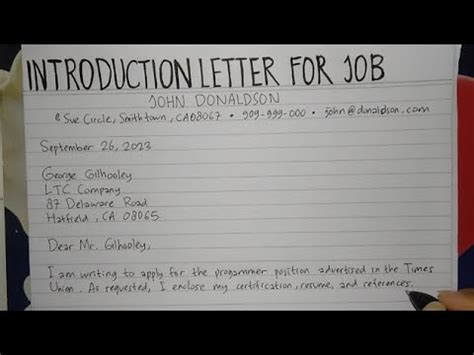 INTRODUCTION LETTER FOR JOB
JOHN DONALDSON
6 Sue Circle, Smithtown, CA08067 • 909-999-000 • john@donaldson.com
September 26, 2023
George Gilhooley
LTC Company
87 Delaware Road
Hatfield, CA 08065
Dear Mr. Gilhooley,
I am writing to apply for the progammer position advertised in the Times
Union. As requested, I enclose my certification, resume, and references.